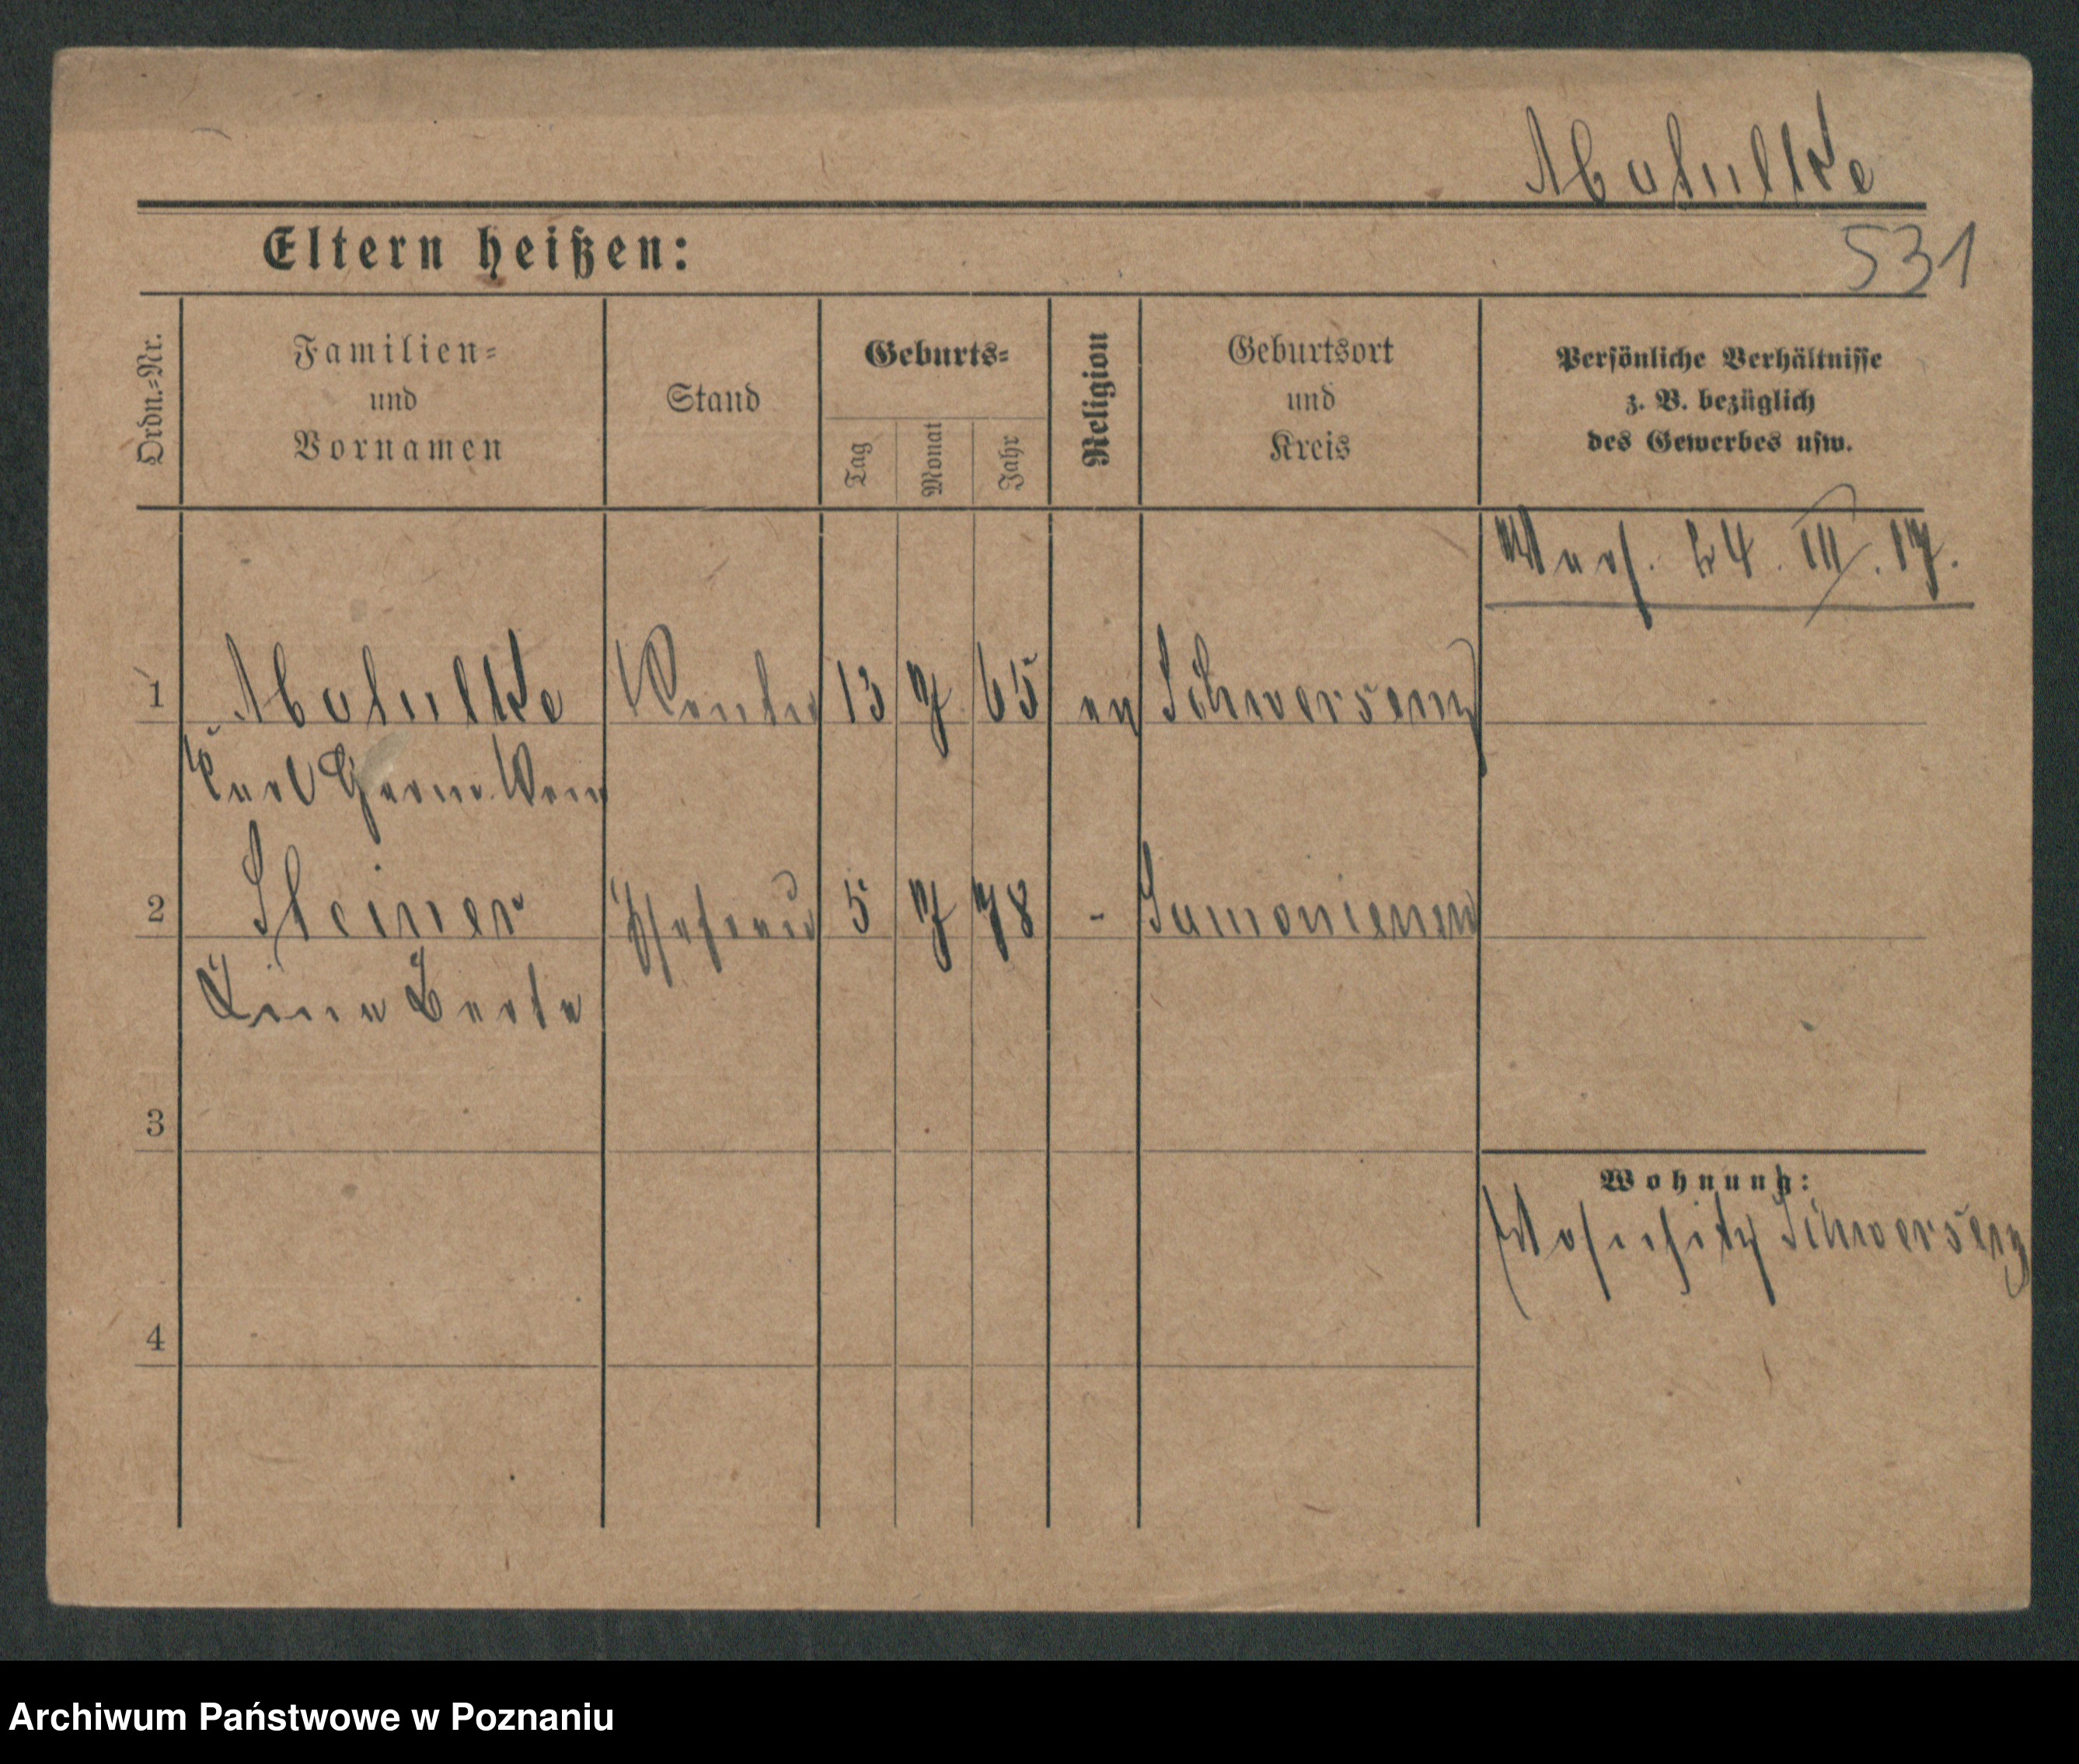 531
Eltern heißen:
Ordn.=Nr.
Familien=
und
Vornamen
Stand
Geburts=
Tag
Monat
Jahr
Religion
Geburtsort
und
Kreis
Persönliche Verhältnisse
z. B. bezüglich
des Gewerbes usw.
24. III. 17.
1
13 7 65 ev Schwersenz
Karl Herm.
2 Steiner Ehefrau 5 7 78 -
Berta
3
Wohnung:
Schwersenz
4
Archiwum Państwowe w Poznaniu